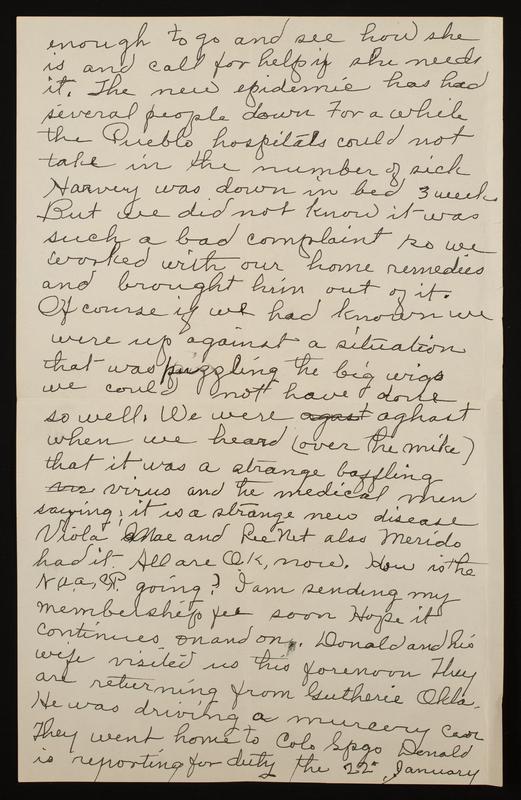 enough to go and see how she
is and call for help if she needs
it. The new epidemic has had
several people down For a while
the Pueblo hospitals could not
take in the number of sick
Harvey was down in bed 3 weeks
But we did not know it was
such a bad complaint so we
worked with our home remedies
and brought him out of it.
Of course if we had known we
were up against a situation
that was puzzling the big wigs
we could not have done
so well. We were agast aghast
when we heard (over the mike)
that it was a strange baffling
virus and the medical men
saying; it is a strange new disease
Viola Mae and ReeNet also Merido
had it. All are O.K., now. How is the
N.A.A.C.P. going? I am sending my
membership fee soon Hope it
continues on and on. Donald and his
wife visited us this forenoon They
are returning from Gutherie Okla.
He was driving a murcery car
They went home to Colo Spgs Donald
is reporting for duty the 22" January